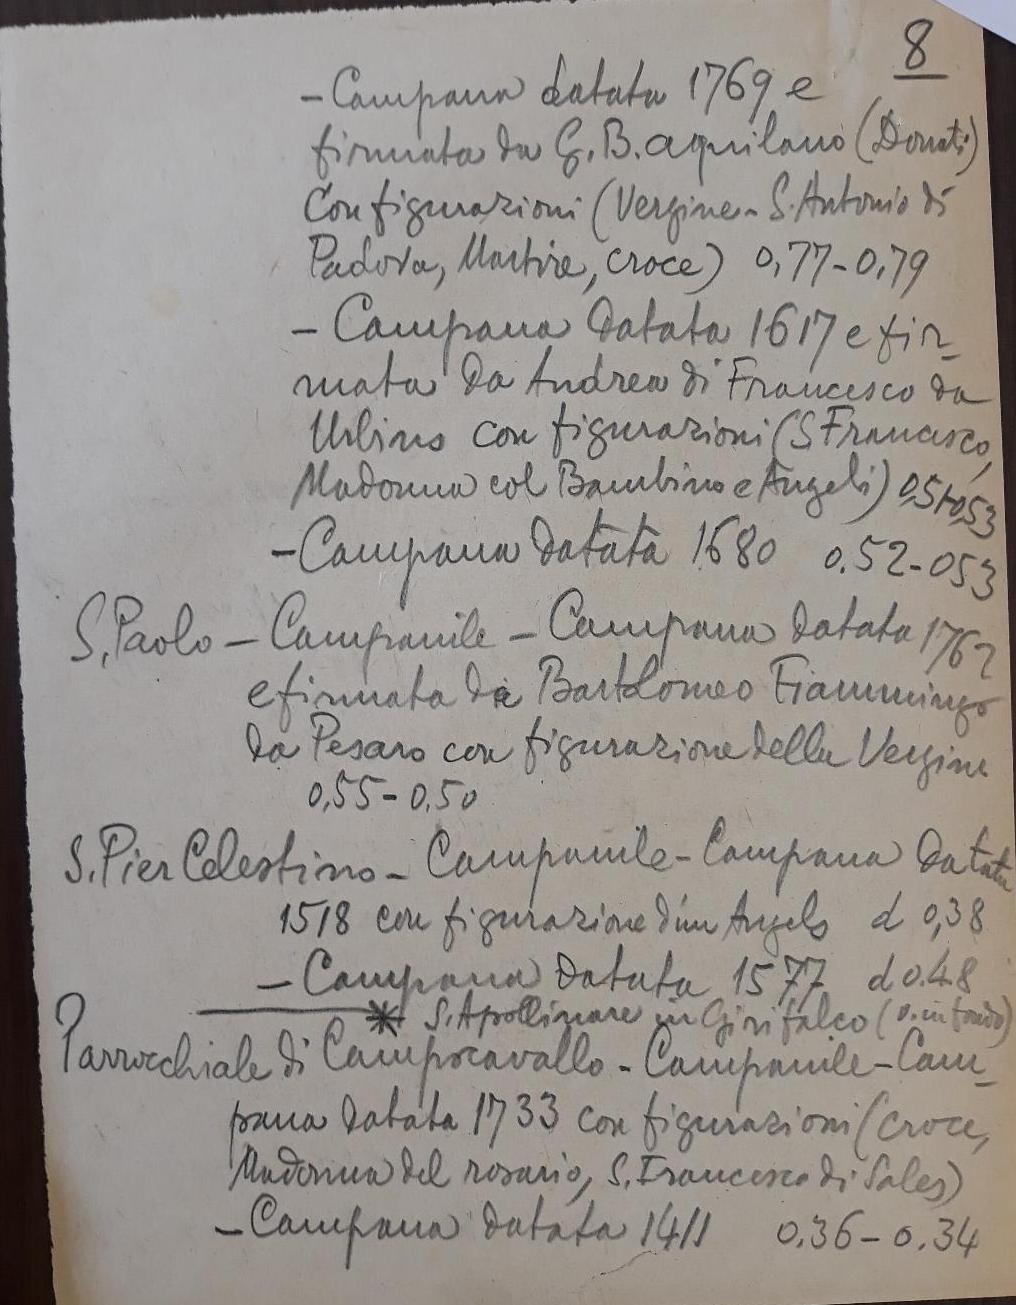 8
- Campana datata 1769 e
firmata da G.B. aquilano (Donati)
Con figurazioni (Vergine - S. Antonio di
Padova, Martire, croce) 0,77-0,79
- Campana datata 1617 e fir-
mata da Andrea di Francesco da
Urbino con figurazioni (S Francesco,
Madonna col Bambino e Angeli) 0,51-0,53
- Campana datata 1680 0.52-053
S. Paolo - Campanile - Campana datata 1762
e firmata da Bartolomeo Fiammingo
da Pesaro con figurazione della Vergine
0,55-0,50
S. Pier Celestino - Campanile - Campana datata
1518 con figurazione d'un Angelo d 0,38
- Campana datata 1577 d 0.48
* S. Apollinare in Girifalco (v. in fondo)
Parrocchiale di Campocavallo - Campanile - Cam-
pana datata 1733 con figurazioni (croce,
Madonna del rosario, S. Francesco di Sales)
- Campana datata 1411 0.36-0.34